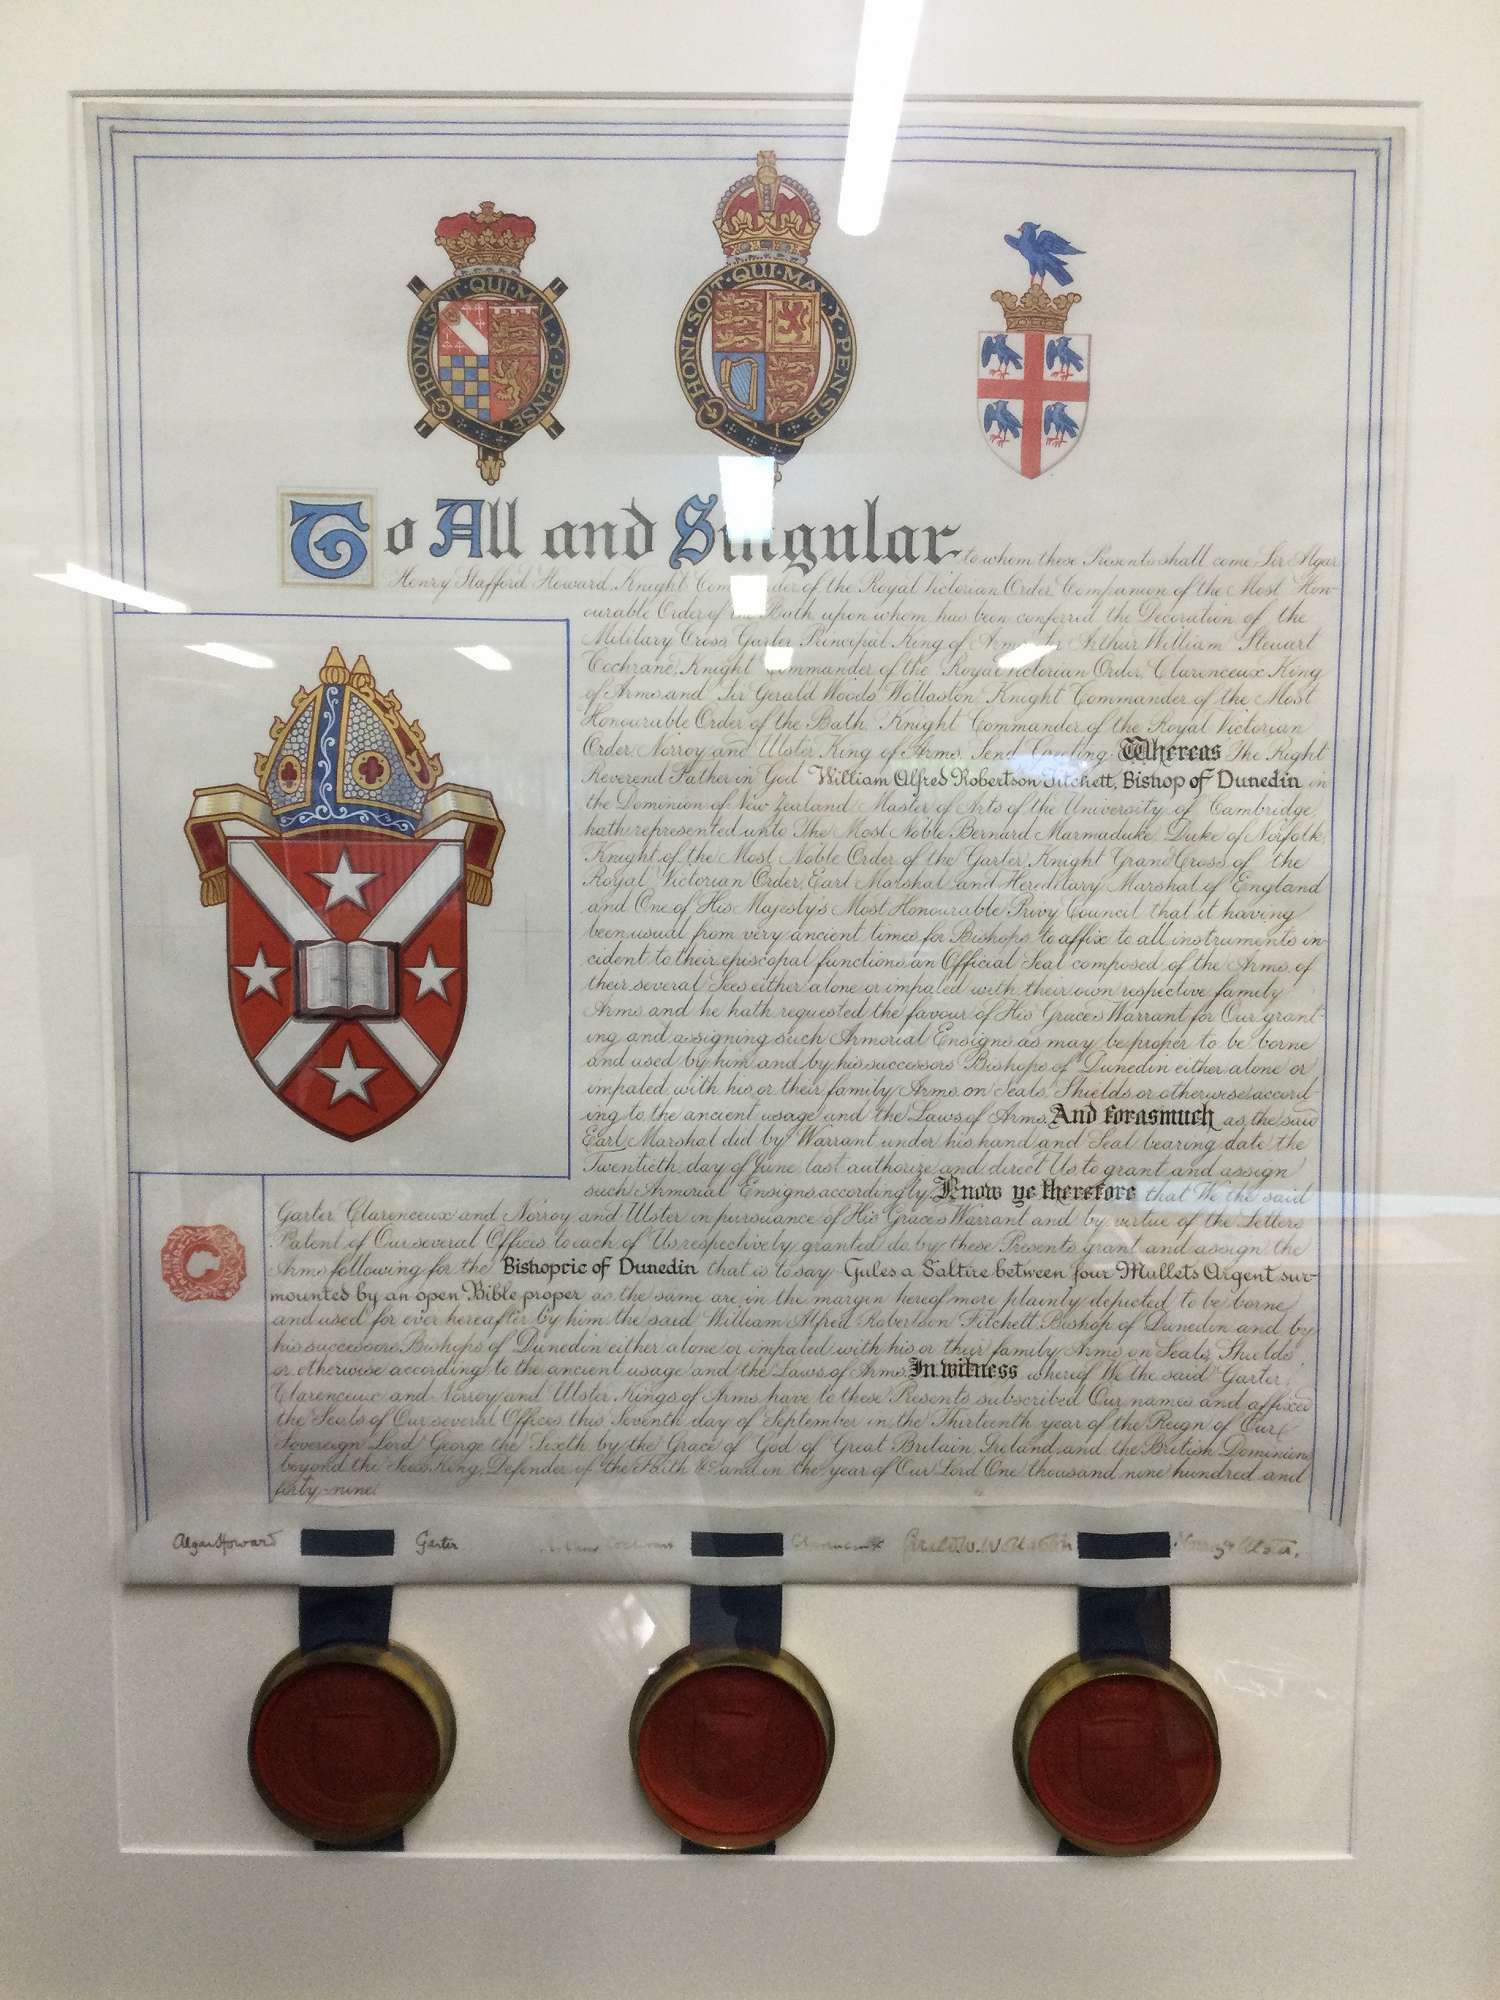 HONI · SOIT · QUI · MAL · Y · PENSE
HONI · SOIT · QUI · MAL · Y · PENSE
To All and Singular to whom these Presents shall come, Sir Algar
Henry Stafford Howard, Knight Commander of the Royal Victorian Order, Companion of the Most Hon-
ourable Order of the Bath, upon whom has been conferred the Decoration of the
Military Cross, Garter Principal King of Arms, Sir Arthur William Steuart
Cochrane, Knight Commander of the Royal Victorian Order, Clarenceux King
of Arms and Sir Gerald Woods Wollaston, Knight Commander of the Most
Honourable Order of the Bath, Knight Commander of the Royal Victorian
Order, Norroy and Ulster King of Arms, Send Greeting. Whereas The Right
Reverend Father in God William Alfred Robertson Fitchett, Bishop of Dunedin in
the Dominion of New Zealand, Master of Arts of the University of Cambridge,
hath represented unto The Most Noble Bernard Marmaduke, Duke of Norfolk,
Knight of the Most Noble Order of the Garter, Knight Grand Cross of the
Royal Victorian Order, Earl Marshal and Hereditary Marshal of England
and One of His Majesty's Most Honourable Privy Council that it having
been usual from very ancient times for Bishops to affix to all instruments in-
cident to their episcopal functions an Official Seal composed of the Arms of
their several Sees either alone or impaled with their own respective family
Arms and he hath requested the favour of His Grace's Warrant for Our grant-
ing and assigning such Armorial Ensigns as may be proper to be borne
and used by him and by his successors Bishops of Dunedin either alone or
impaled with his or their family Arms on Seals, Shields or otherwise accord-
ing to the ancient usage and the Laws of Arms. And forasmuch as the said
Earl Marshal did by Warrant under his hand and Seal bearing date the
Twentieth day of June last authorize and direct Us to grant and assign
such Armorial Ensigns accordingly. Know ye therefore that We the said
Garter, Clarenceux and Norroy and Ulster in pursuance of His Grace's Warrant and by virtue of the Letters
Patent of Our several Offices to each of Us respectively granted do by these Presents grant and assign the
Arms following for the Bishopric of Dunedin that is to say Gules a Saltire between four Mullets Argent sur-
mounted by an open Bible proper as the same are in the margin hereof more plainly depicted to be borne
and used for ever hereafter by him the said William Alfred Robertson Fitchett, Bishop of Dunedin and by
his successors Bishops of Dunedin either alone or impaled with his or their family Arms on Seals, Shields,
or otherwise according to the ancient usage and the Laws of Arms. In witness whereof We the said Garter,
Clarenceux and Norroy and Ulster Kings of Arms have to these Presents subscribed Our names and affixed
the Seals of Our several Offices this Seventh day of September in the Thirteenth year of the Reign of Our
Sovereign Lord George the Sixth by the Grace of God of Great Britain, Ireland and the British Dominions
beyond the Seas King, Defender of the Faith &c and in the year of Our Lord One thousand nine hundred and
forty-nine.
Algar Howard Garter Cochrane Clarenceux Gerald W. Wollaston Norroy & Ulster.